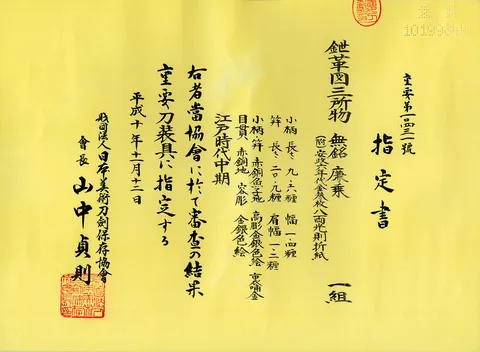 重要第一四三一號
指定書
革図三所物 無銘 廉乗 一組
光則折紙
小柄 長さ 九・六糎 幅 一・四糎
笄 長さ 二〇・九糎 肩幅 一・二糎
小柄・笄 赤銅魚子地 高彫金銀色絵 裏哺金
目貫 赤銅地 容彫 金銀色絵
江戸時代中期
右者當協會に於て審査の結果
重要刀装具に指定する
平成十年十一月十二日
財団法人日本美術刀剣保存協會
會長 山中貞則